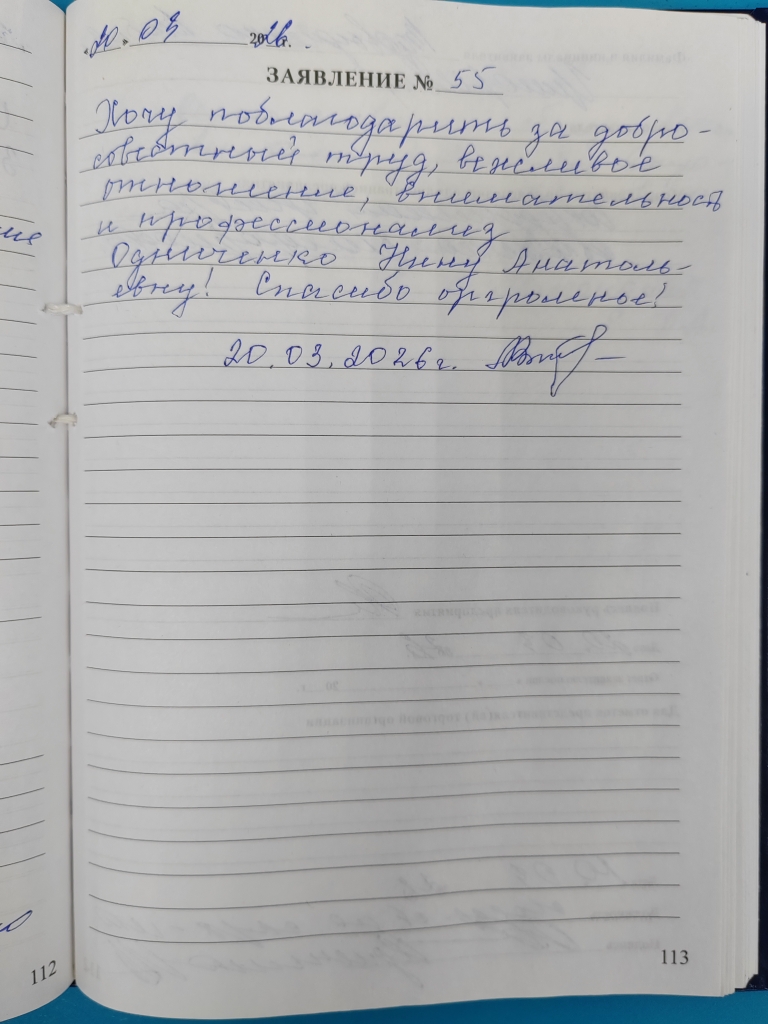 «20» 03 2026г.
ЗАЯВЛЕНИЕ № 55
Хочу поблагодарить за добро-
совестный труд, вежливое
отношение, внимательность
и профессионализ
Одниченко Нину Анатоль-
евну! Спасибо огромное!
20.03.2026г.
112
113